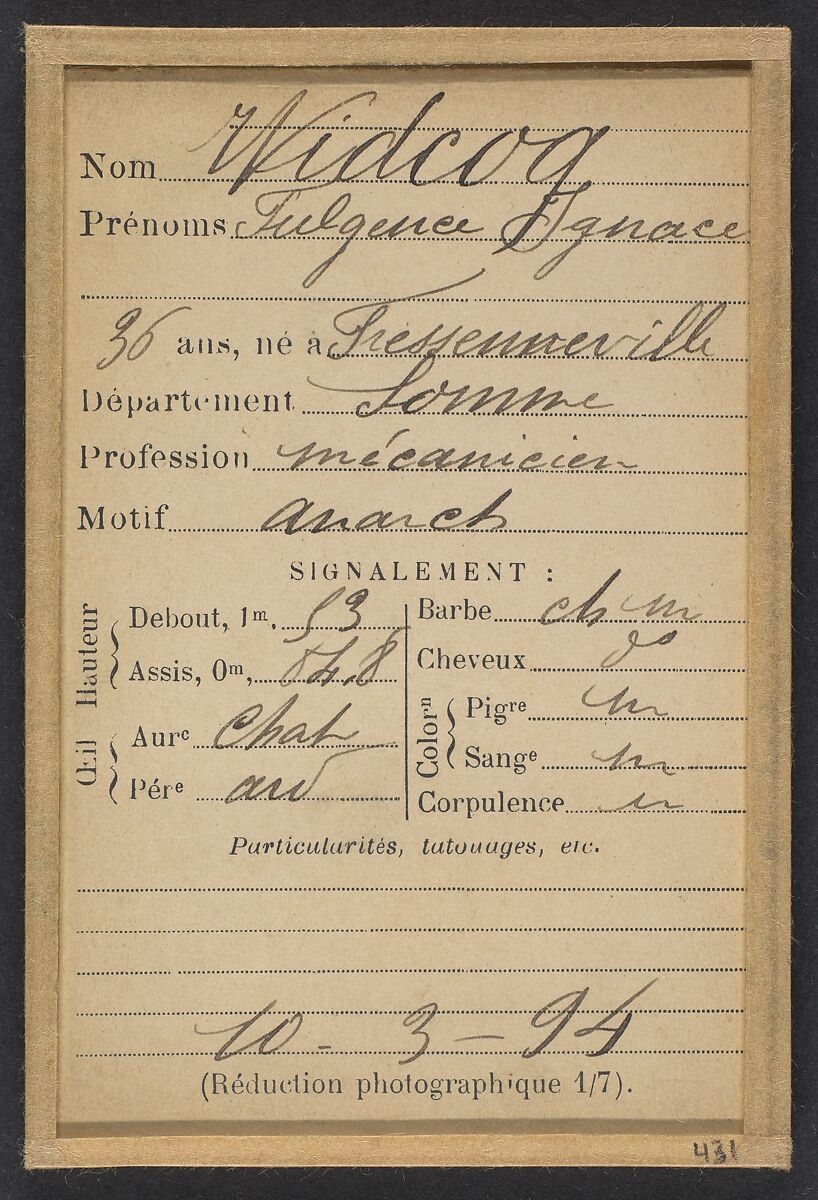 Nom Widcoq
Prénoms Fulgence Ignace
36 ans, né à Fressenneville
Département Somme
Profession mécanicien
Motif anarch
SIGNALEMENT :
Hauteur
Debout, 1m, 53
Assis, 0m, 84.8
Œil
Aurc Chat
Pére ard
Barbe ch m
Cheveux do
Colorn
Pigre m
Sange m
Corpulence m
Particularités, tatouages, etc.
10 - 3 - 94
(Réduction photographique 1/7).
431